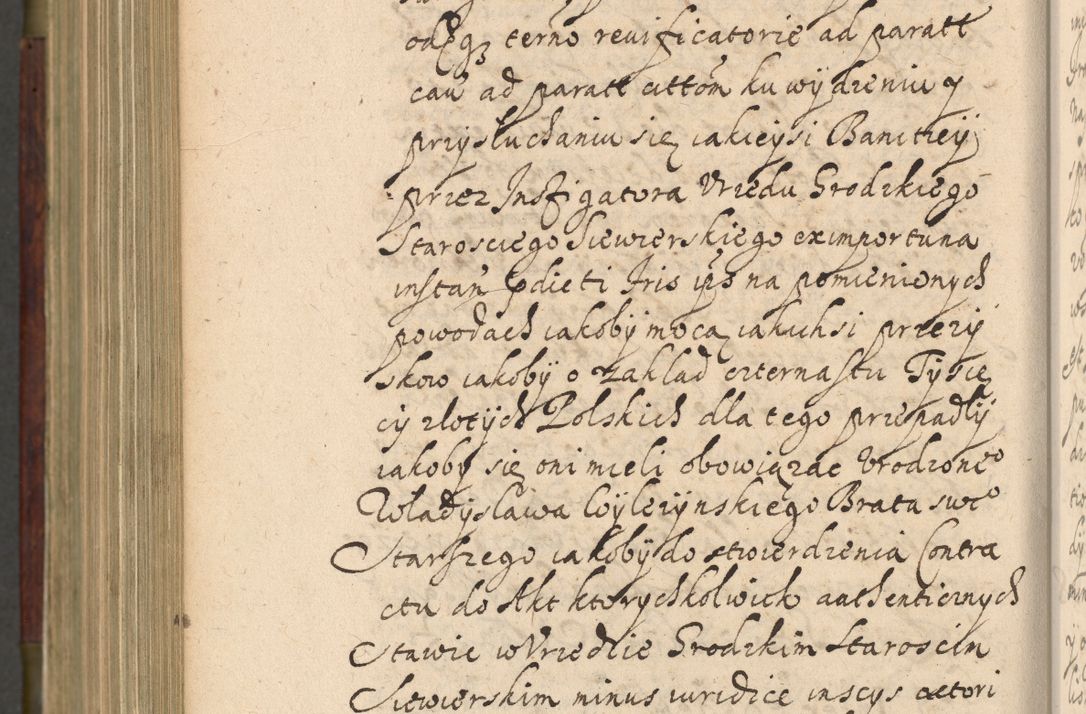 terno reuificatorie ad paratt
cau ad paratt cittom ku wÿdzeniu y
przÿsłuchaniu się iakieÿsi Banitieÿ
przez Instigatora Vrzedu Grodzkiego
Starosciego Siewierskiego eximportuna
instan pdicti Iris ips na pomienionych
powodach iakobÿ mocą iakichsi przezÿ
skow iakobÿ o zakład czternastu Tÿsię
cÿ złotÿch Polskich dla tego przepadłÿ
iakoby się oni mieli obowiązac Vrodzone⁰
Władÿsława Wÿlezÿnskiego Brata swe⁰
Starszego iakobÿ do stwierdzenia Contra
ctu do Akt ktorychkolwiek authenticznych
Stawic w Vrzedzie Grodzkim Staroscim
Siewierskim minus iuridice inscÿs actori